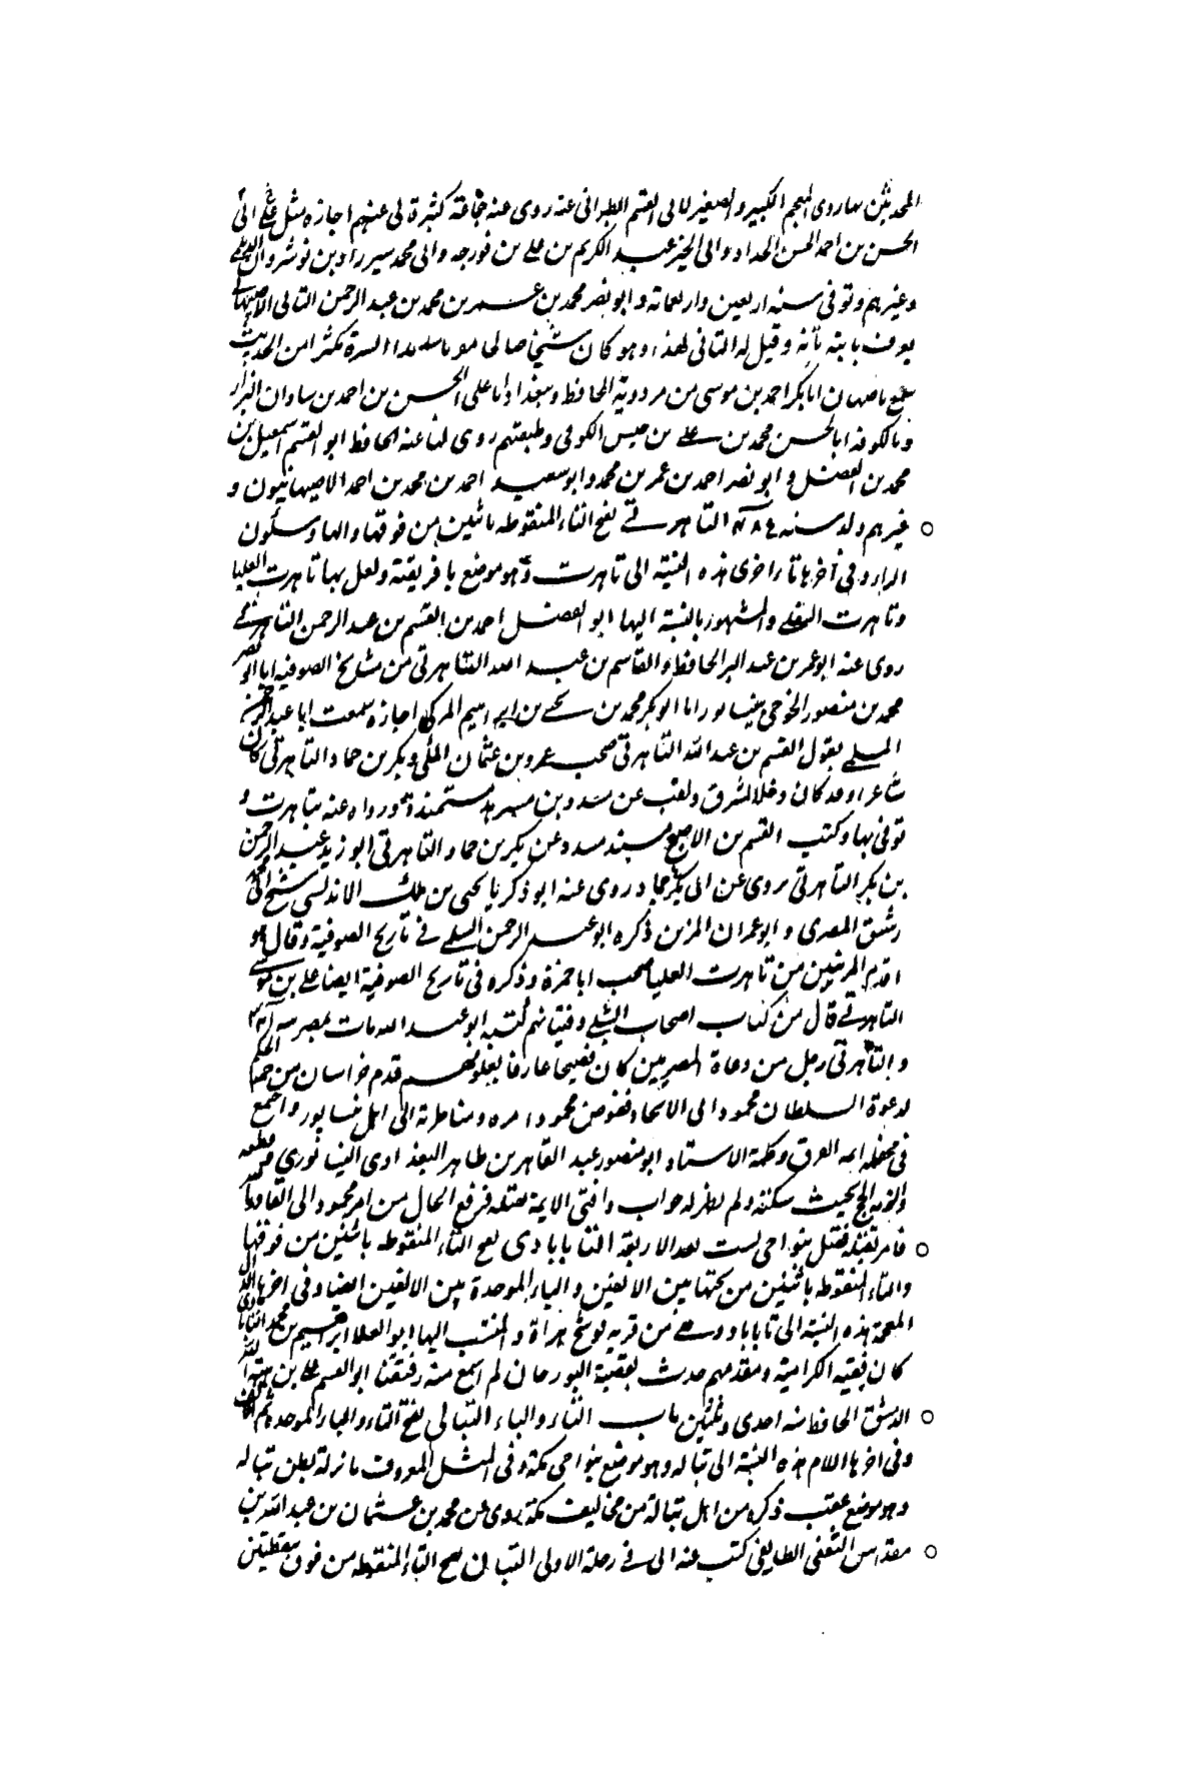 المحدثين بها روى المعجم الكبير والصغير لابى القسم الطبرانى عنه روى عنه جماعة كثيرة لى عنهم اجازه مثل ابى على
الحسن بن احمد الحسن الحداد وابى الخير عبد الكريم بن على بن فورجه وابى محمد شيرزاد بن نوشروان
وغيرهم وتوفى سنه اربعين واربعمائة وابو نصر محمد بن عمر بن محمد بن عبد الرحمن التانى الاصبهانى
يعرف بابن تانه وقيل له التانى لهذا وهو كان شيخا صالحا سديد السيرة مكثرا من الحديث
سمع باصبهان ابا بكر احمد بن موسى بن مردويه الحافظ وببغداد ابا على الحسن بن احمد بن شاذان البزاز
وبالكوفه ابا الحسن محمد بن على بن الكوفى وطبقتهم روى لنا عنه الحافظ ابو القسم اسمعيل بن
محمد بن الفضل وابو نصر احمد بن عمر بن محمد وابو سعيد احمد بن محمد بن احمد الاصبهانيون و
غيرهم ولد سنه التاهرتى بفتح التاء المنقوطه باثنتين من فوقها والها وسكون
الراء وفى آخرها تاء اخرى هذه النسبة الى تاهرت وهو موضع بافريقية ولعل بها تاهرت العليا
وتاهرت السفلى والمشهور بالنسبة اليها ابو الفضل احمد بن القسم بن عبد الرحمن التاهرتى
روى عنه ابو عمر بن عبد البر الحافظ والقاسم بن عبد الله التاهرتى من مشايخ الصوفيه انا ابو
محمد بن منصور الخرجى بنيسابور انا ابو بكر محمد بن يحيى بن ابراهيم المزكى اجازه سمعت ابا عبد الرحمن
السلمى يقول القسم بن عبد الله التاهرتى صحب عمرو بن عثمان المكى وبكر بن حماد التاهرتى كان
شاعرا وقد كان دخل الشرق وكتب عن مسدد بن مسرهد مسنده ورواه عنه بتاهرت و
توفى بها وكتب القسم بن الاصبغ مسند مسدد عن بكر بن حماد التاهرتى ابو زيد عبد الرحمن
بن بكر التاهرتى يروى عن ابى بكر حماد روى عنه ابو ذكريا يحيى بن ملك الاندلسى شيخ ابى محمد
رشيق المصرى وابو عمران المزين ذكره ابو عبد الرحمن السلمى فى تاريخ الصوفية وقال هو
اقدم المزينين من تاهرت العليا صحب ابا حمزة وذكره فى تاريخ الصوفية ايضا على بن موسى
التاهرتى قال من كتاب اصحاب الشبلى وفتيانهم كتبه ابو عبد الله مات بمصر سنه
والتاهرتى رجل من دعاة المصريين كان فصيحا عارفا بعلومهم قدم خراسان من جهة الحكم
لدعوة السلطان محمود الى الالحاد ففوض محمود امره ومناظرته الى اهل نيسابور واجمع
فى محفله ايمه الفرق وكلمه الاستاد ابو منصور عبد القاهر بن طاهر البغدادى النيسابورى وقطعه
والزمه الحج بحيث سكته ولم يظفر له جواب وافتى الايمة بقتله فرفع الحال من امر محمود الى القادر
فامر بقتله فقتل بنواحى بست بعد الاربعمائة التايابادى بفتح التاء المنقوطه باثنتين من فوقها
والياء المنقوطه باثنتين من تحتها بين الالفين والباء الموحدة بين الالفين ايضا وفى اخرها الدال
المعجمة هذه النسبة الى تاياباد وهى من قريه بوشنج هراة والمنتسب اليها ابو العلا ابراهيم بن محمد
كان فقيه الكرامية ومقدمهم حدث بقصبة البوزجان لم اسمع منه رفيقنا ابو القسم على بن هبة الله
الدمشقى الحافظ سنه احدى وثلثين باب التاء والباء التبالى بفتح التاء والباء الموحدة
وفى اخرها اللام هذه النسبة الى تباله وهو موضع بنواحى مكة وفى المثل المعروف ما نزلت بطن تباله
وهو موضع عقب ذكره من اهل تبالة من مخاليف مكة روى عن محمد بن عثمان بن عبد الله بن
مقداس الثقفى الطايفى كتب عنه ابى فى رحلة الاولى التبان بفتح التاء المنقوطه من فوق بنقطتين